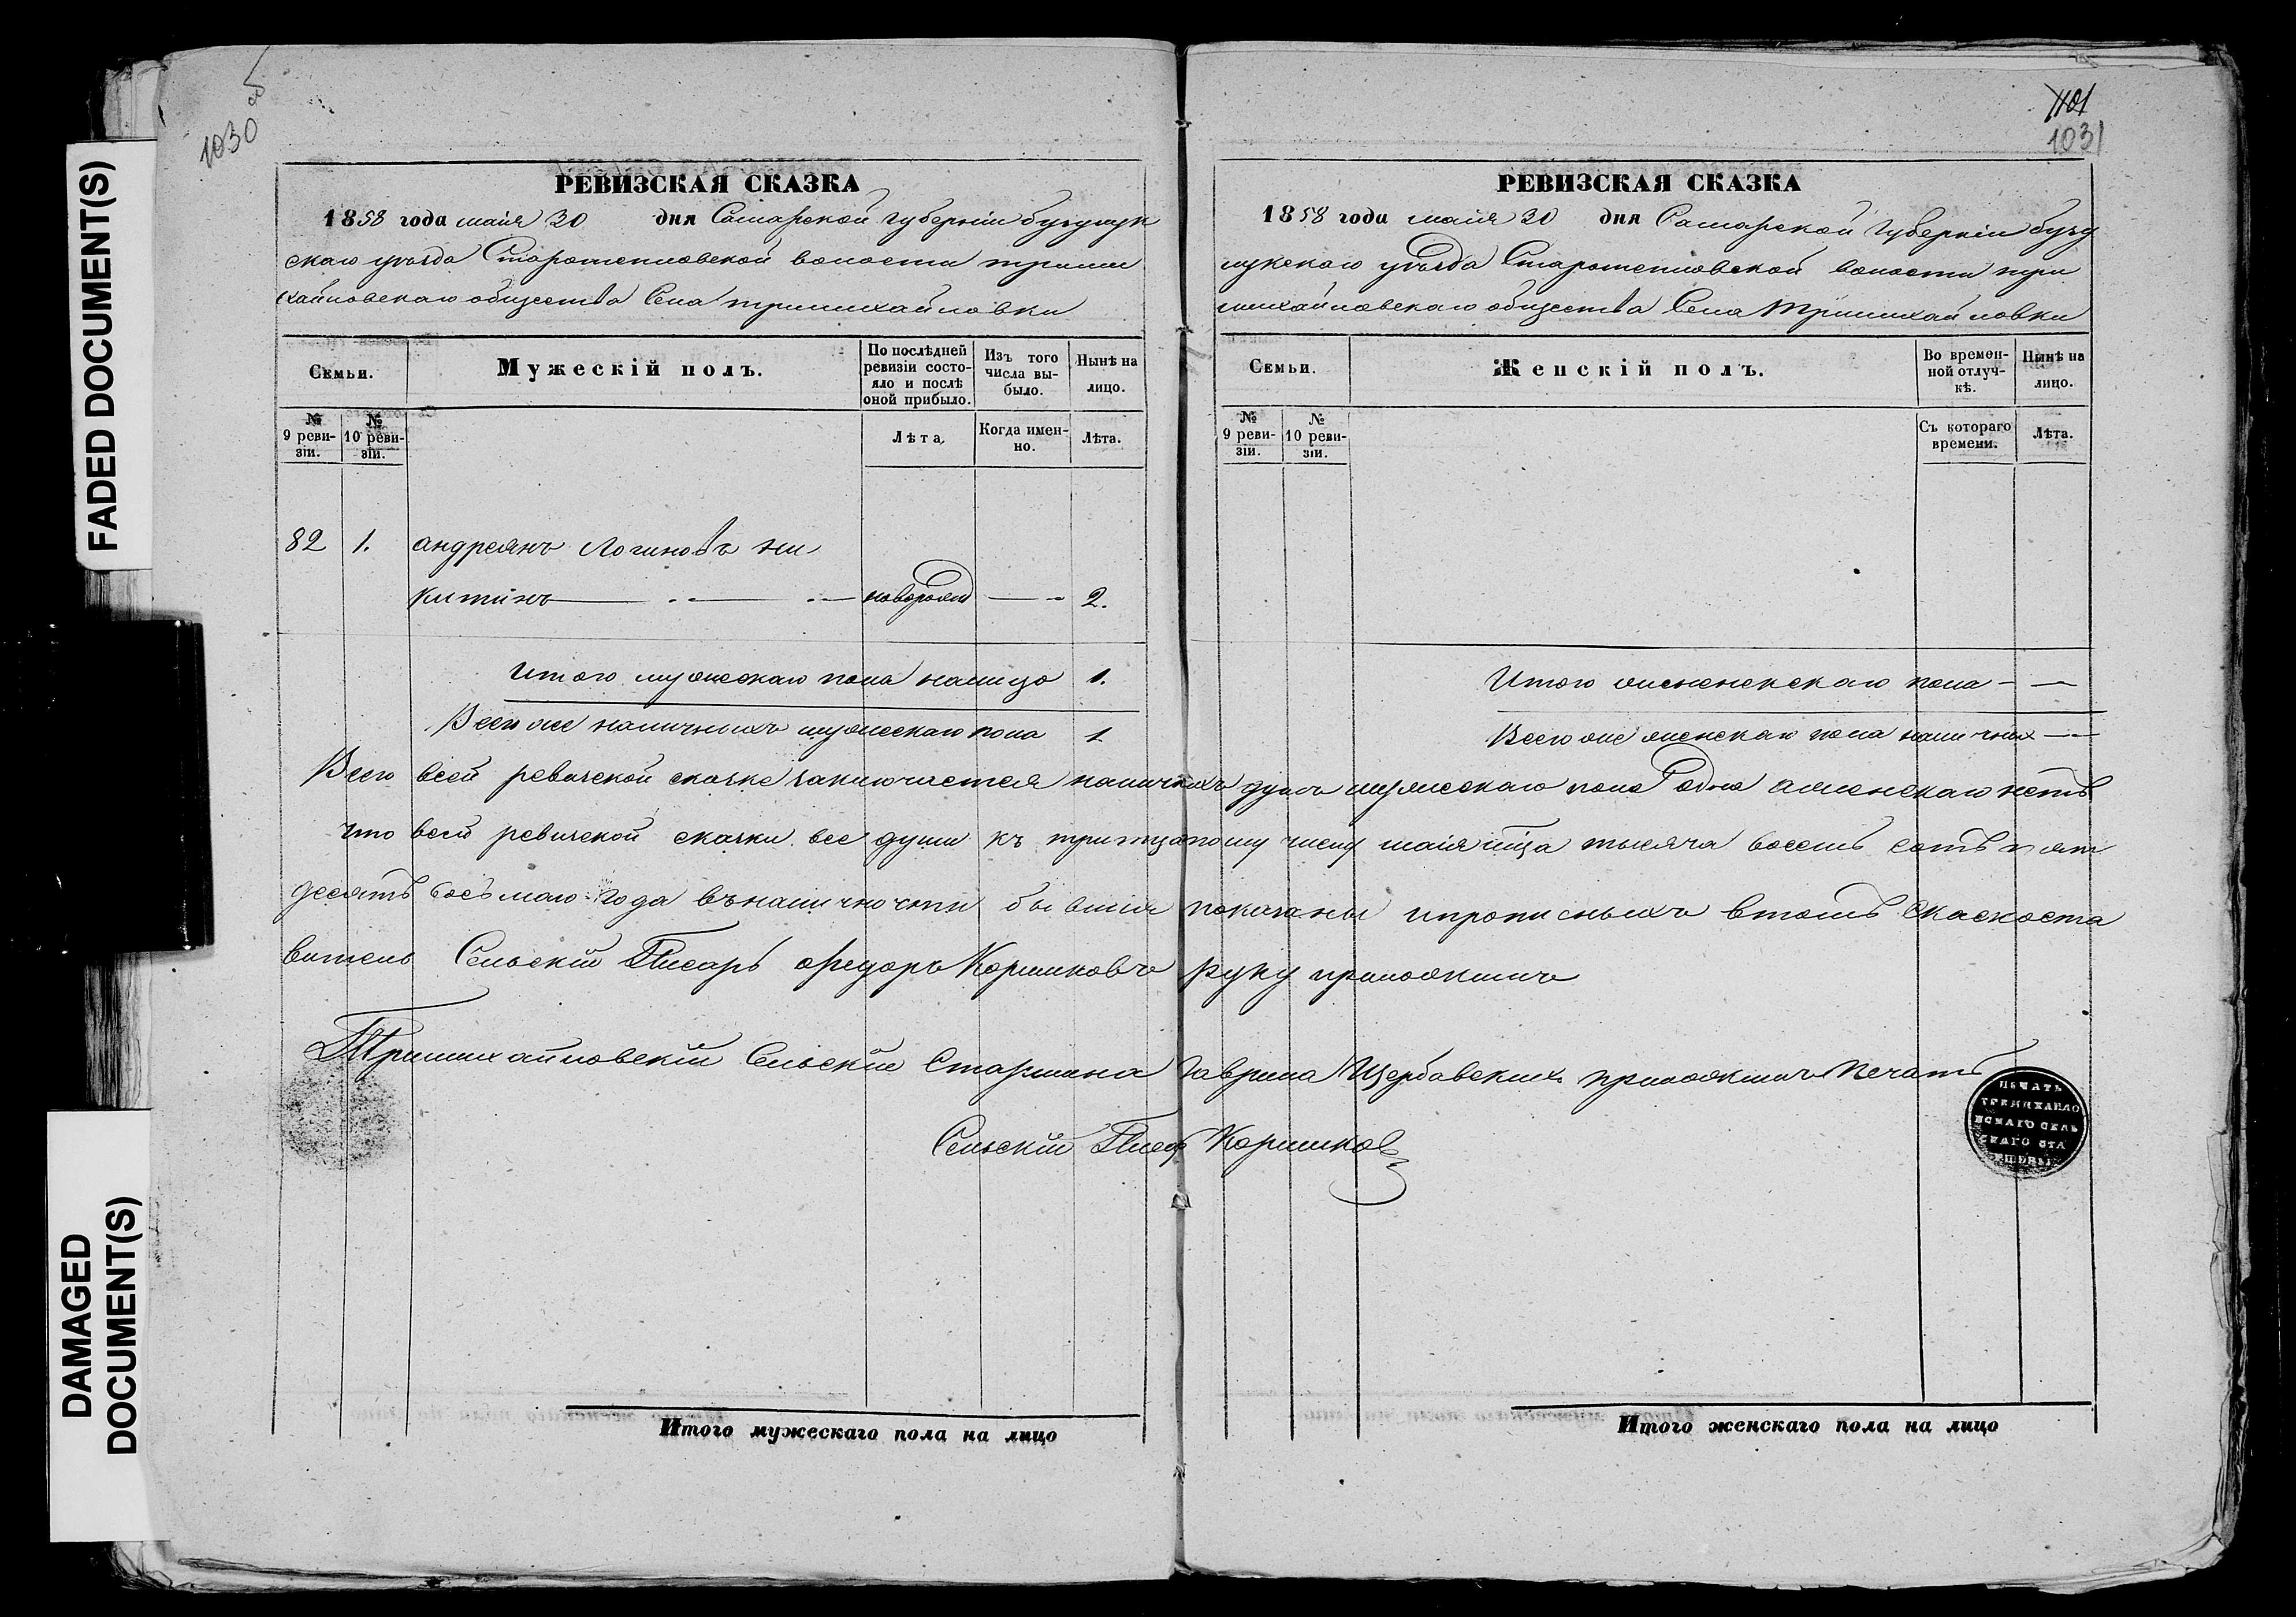 FADED DOCUMENT(S)
DAMAGED
DOCUMENT(S)
1030 об
РЕВИЗСКАЯ СКАЗКА
1858 года маія 30 дня Самарской губерніи бузулук
скаго уѣзда Старотепловской волости трими
хайловскаго общества Села тримихайловки
Семьи.
Мужескій полъ.
По послѣдней
ревизіи состо-
яло и послѣ
оной прибыло.
Изъ того
числа вы-
было.
Нынѣ на
лицо.
№
9 реви-
зіи.
№
10 реви-
зіи.
Лѣта,
Когда имен-
но.
Лѣта.
82 1. андреянъ Логиновъ ни
китинъ новорожд 2.
Итого мужескаго пола налицо 1.
Всего же наличныхъ мужескаго пола 1
1101
1031
РЕВИЗСКАЯ СКАЗКА
1858 года маія 30 дня Самарской губерніи бузу
лукскаго уѣзда Старотепловской волости три
михайловскаго общества Села тримихайловки
Семьи.
Женскій полъ.
Во времен-
ной отлуч-
кѣ.
Нынѣ на
лицо.
№
9 реви-
зіи.
№
10 реви-
зіи.
Съ котораго
времени.
Лѣта.
Итого женскаго пола - —
Всего же женскаго пола наличных —
Всего всей ревизской сказке заключается наличныхъ душъ мужескаго пола одна аженскаго нетъ
что всей ревизской сказки все души къ тритцатому числу маія мца тысяча восемь сотъ пят
десятъ восьмаго года въналичности бывшія показаны ипрописныхъ втомъ Скаскоста
витель Сельскій Писарь федоръ Коршиковъ руку приложилъ
Тримихайловскій Сельскій Старшина Гаврила Щербавскихъ приложилъ печать
Сельскій Писарь Коршиков
ПЕЧАТЬ
ТРЕМИХАЙЛО
ВСКАГО СЕЛЬ
СКАГО СТА
РШИНЫ
Итого мужескаго пола на лицо
Итого женскаго пола на лицо